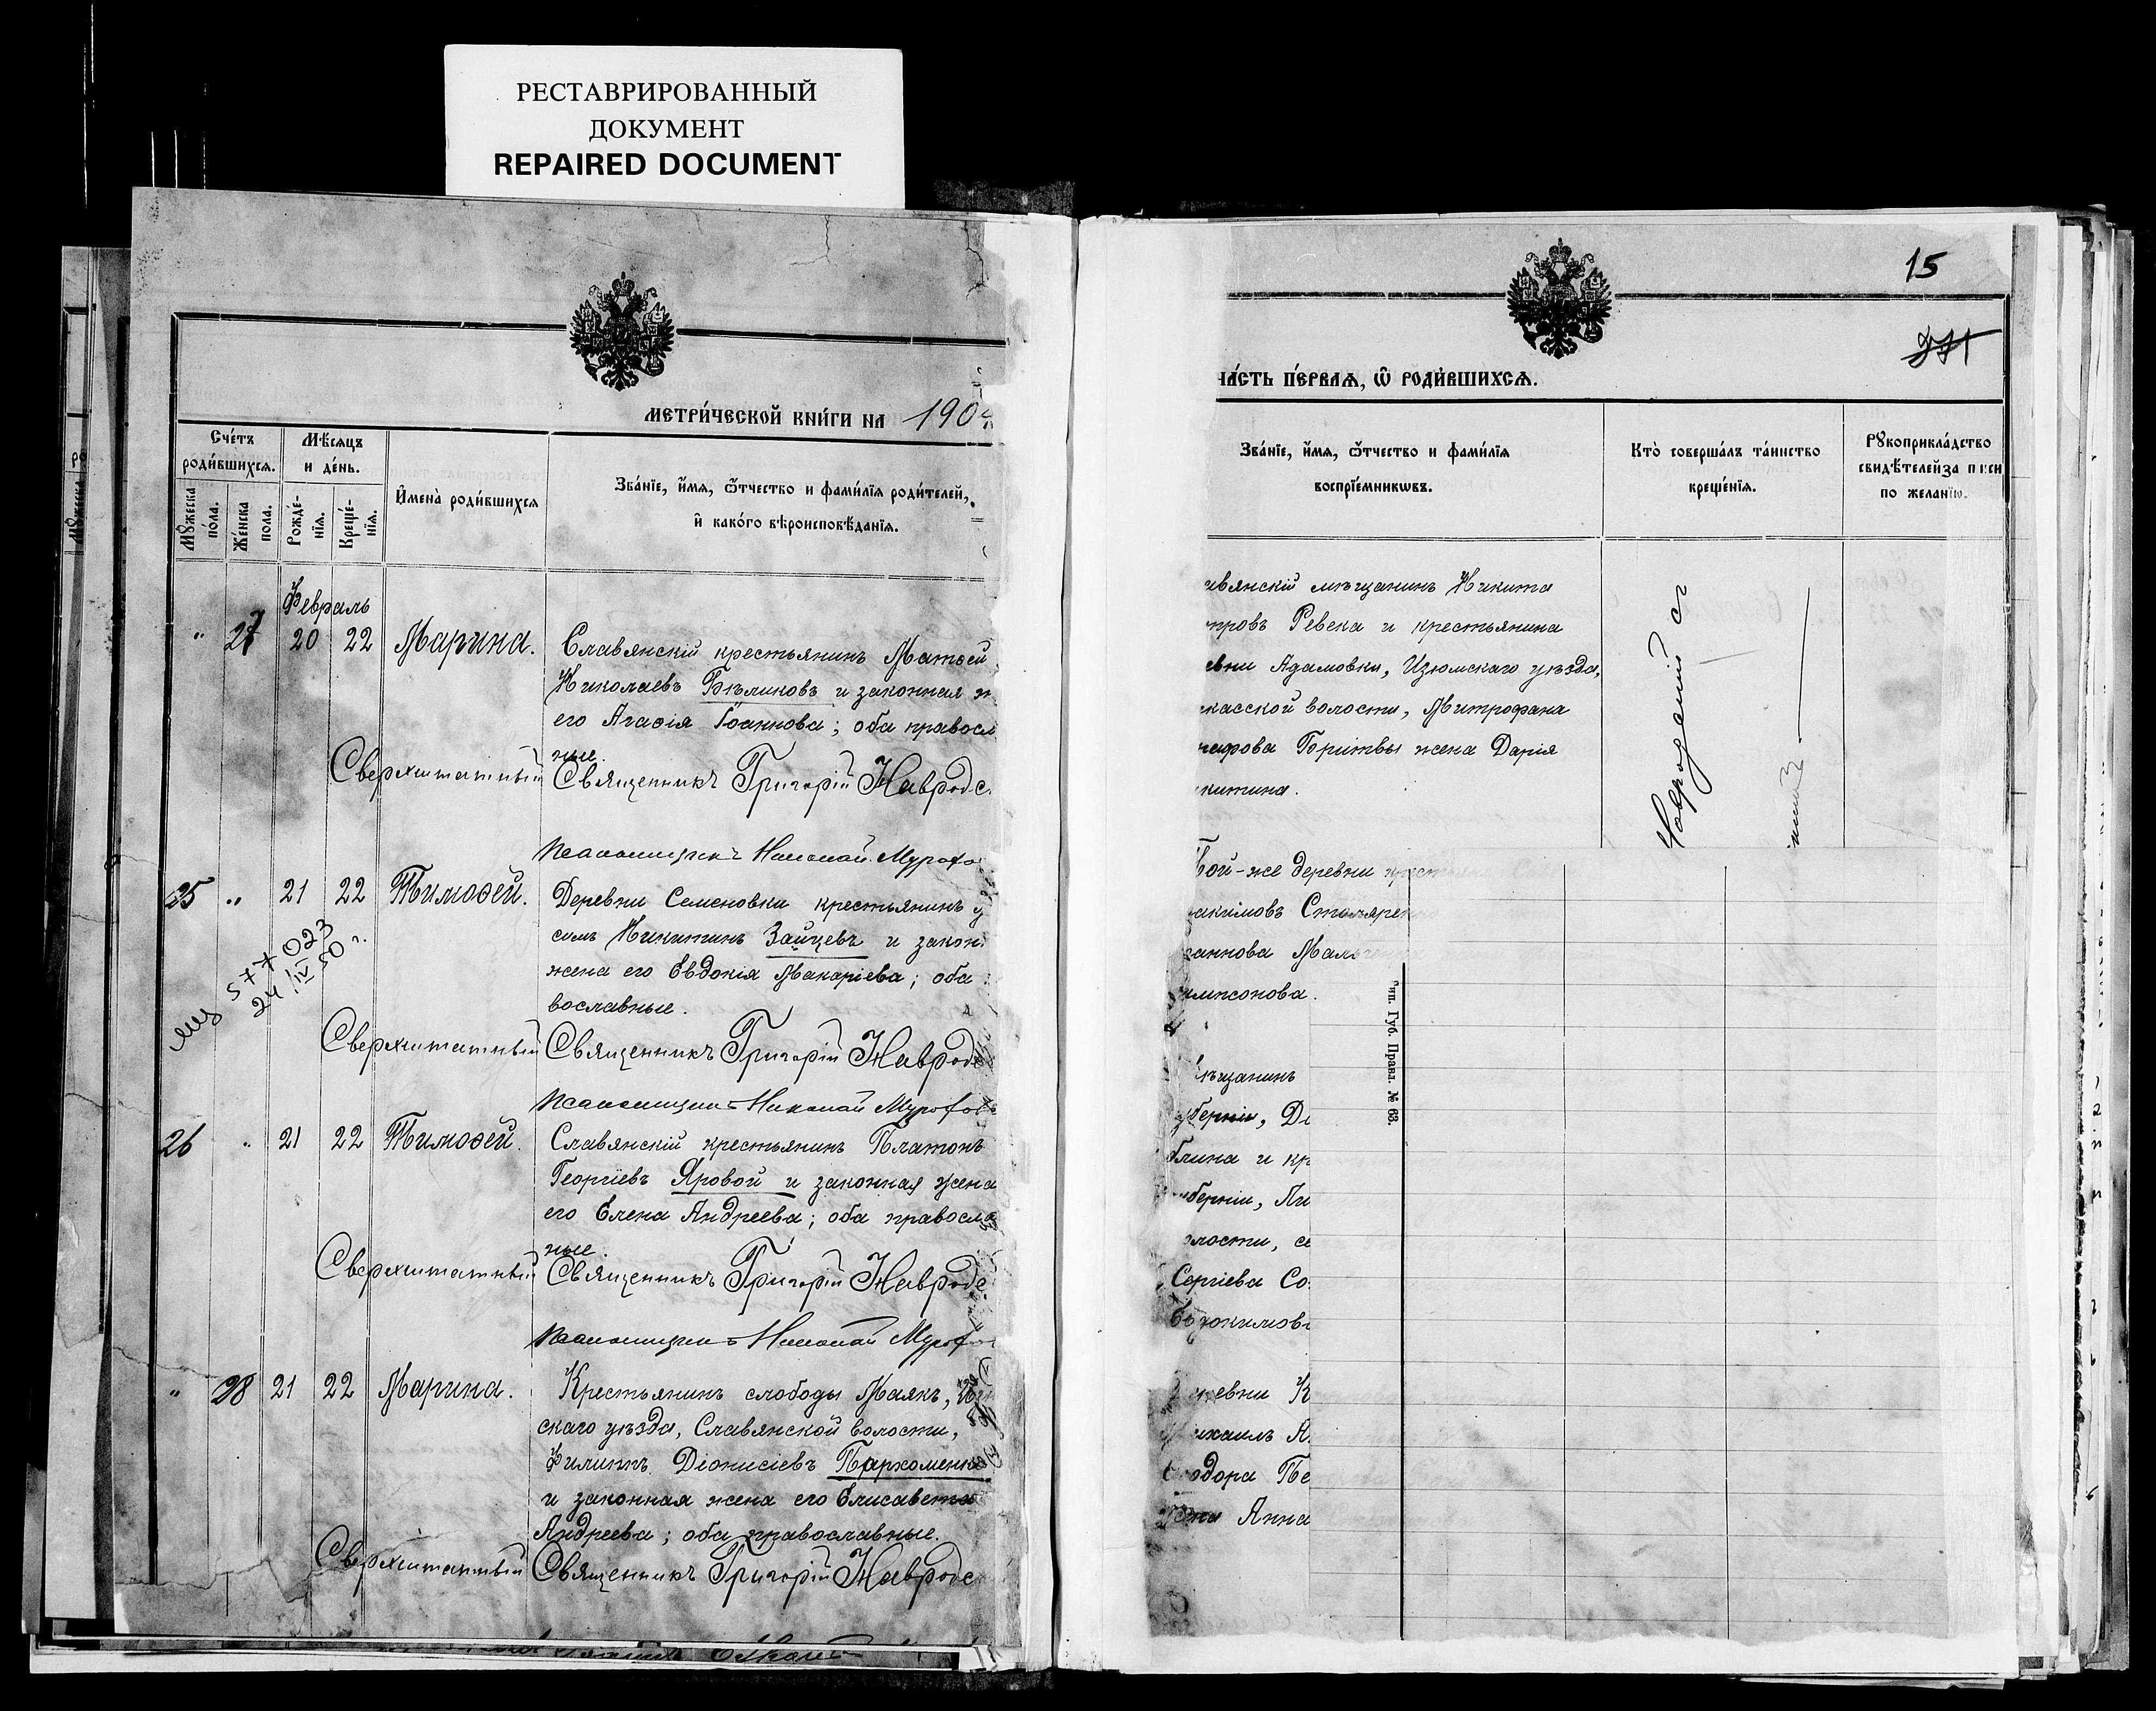 РЕСТАВРИРОВАННЫЙ
ДОКУМЕНТ
REPAIRED DOCUMENT
МЕТРИ́ЧЕСКОЙ КНИ́ГИ НА 190
Сче́тъ
роди́вшихсѧ.
Мѣсѧцъ
и де́нь.
Мꙋжеска
по́ла.
Же́нска
пола.
Рожде́-
нїѧ.
Креще́-
нїѧ.
И҆мена̀ роди́вшихсѧ
Зва́нїе, и҆́мѧ, ѻ҆́тчество и фами́лїѧ роди́телей,
и҆ како́го вѣроисповѣ́данїѧ.
Февраль
" 27 20 22 Марина.
Славянскій крестьянинъ Матѳей
Николаевъ Бѣликовъ и законная
его Агаѳія Іоаннова; оба правосл
ные.
Сверхштатный Священникъ Григорій Навродс
Псаломщикъ Николай
25 " 21 22 Тимоѳей.
Деревни Семеновки крестьянинъ
Никитинъ Зайцевъ и закон
жена его Евдокія Макаріева; оба
вославные.
577023
24/IV 50 г.
Сверхштатный Священникъ Григорій Навродс
Псаломщикъ Николай
26 " 21 22 Тимоѳей.
Славянскій крестьянинъ Платонъ
Георгіевъ Яровой и законная жена
его Елена Андреева; оба правосла
ные.
Сверхштатный Священникъ Григорій Навродс
Псаломщикъ Николай
" 28 21 22 Марина.
Крестьянинъ слободы Маякъ,
скаго уѣзда, Славянской волости,
Филиппъ Діонисіевъ Пархоменко
и законная жена его Елисавета
Андреева; оба православные.
Сверхштатный Священникъ Григорій Навродс
15
ЧА́СТЬ ПЕ́РВАѦ, Ѡ҆ РОДИ́ВШИХСѦ.
Зва́нїе, и҆́мѧ, ѻ҆́тчество и фами́лїѧ
воспрїе́мникѡвъ.
Кто̀ соверша́лъ та́инство
креще́нїѧ.
Рꙋкоприкла́дство
свидѣ́телей за писи
по желанїю.
авянскій мѣщанинъ Никита
тровъ Ревека и крестьянина
евни Адамовки, Изюмскаго уѣзда,
касской волости, Митрофана
Бритвы жена Дарія
китина.
Той-же деревни
акимовъ Столярен
аннова
мпсонова.
Тип. Губ. Правл. № 63.
ѣщанинъ
уберніи,
и кр
уберніи, Ли
лости, се
Сергіева Со
евни К
ихаилъ А
одора Пе
Анна